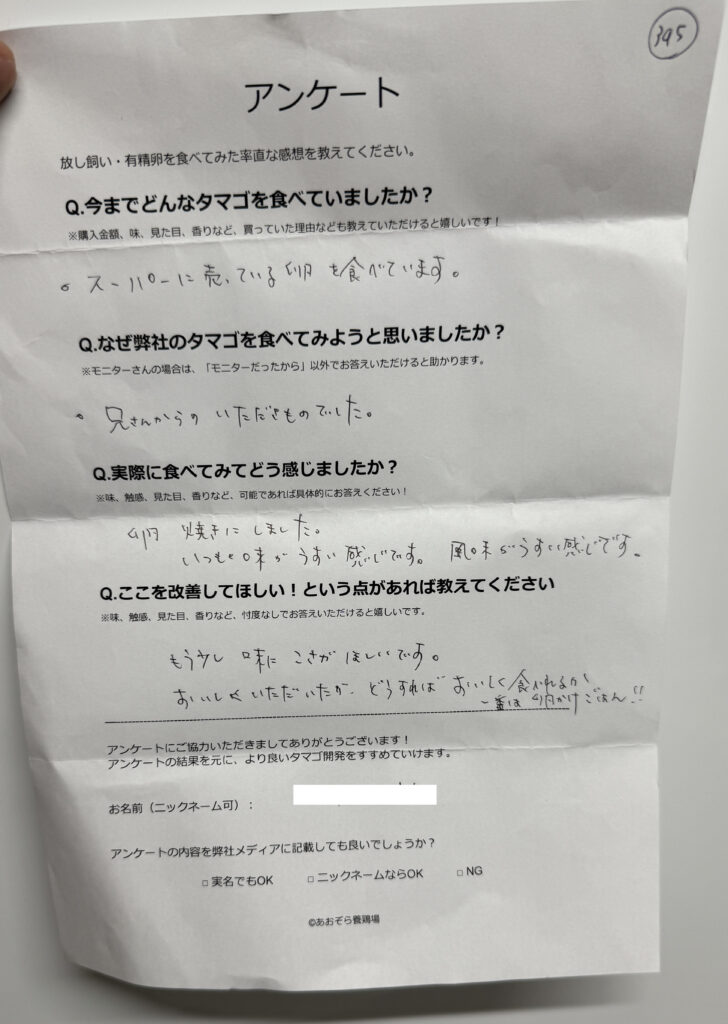 395
アンケート
放し飼い・有精卵を食べてみた率直な感想を教えてください。
Q.今までどんなタマゴを食べていましたか？
※購入金額、味、見た目、香りなど、買っていた理由なども教えていただけると嬉しいです！
。スーパーに売っている卵を食べています。
Q.なぜ弊社のタマゴを食べてみようと思いましたか？
※モニターさんの場合は、「モニターだったから」以外でお答えいただけると助かります。
。兄さんからの いただきものでした。
Q.実際に食べてみてどう感じましたか？
※味、触感、見た目、香りなど、可能であれば具体的にお答えください！
卵焼きにしました。
いつもの味がうすい感じです。 風味がうすい感じです。
Q.ここを改善してほしい！という点があれば教えてください
※味、触感、見た目、香りなど、忖度なしでお答えいただけると嬉しいです。
もう少し 味に こさが ほしいです。
おいしくいただいたが、どうすれば おいしく食べれるか
一番は卵かけごはん!!
アンケートにご協力いただきましてありがとうございます！
アンケートの結果を元に、より良いタマゴ開発をすすめていけます。
お名前（ニックネーム可）：
アンケートの内容を弊社メディアに記載しても良いでしょうか？
□ 実名でもOK □ ニックネームならOK □ NG
©あおぞら養鶏場